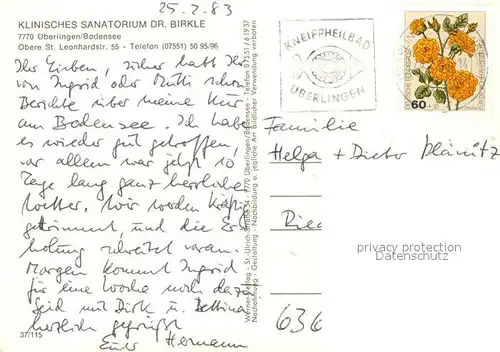 25.2.83
KLINISCHES SANATORIUM DR. BIRKLE
7770 Überlingen/Bodensee
Obere St. Leonhardstr. 55 - Telefon (07551) 50 95/96
Ihr Lieben, sicher habt Ihr
von Ingrid oder Mutti schon
Berichte über meine Kur
am Bodensee. Ich habe
es wieder gut getroffen,
vor allem war jetzt 10
Tage lang ganz herrliches
Wetter. Wir werden kräftig
getrimmt, und die Er-
holung schreitet voran.
Morgen kommt Ingrid
für eine Woche noch dazu
Seid mit Dirk u. Bettina
herzlich gegrüßt
Euer Hermann
37/115
Werner-Verlag - St.-Ulrich-Straße 34 - 7770 Überlingen/Bodensee - Telefon 07551/61937
Nachahmung - Gestaltung - Nachbildung u. jegliche Art bildlicher Verwendung verboten
KNEIPPHEILBAD
ÜBERLINGEN
60
Familie
Helga + Dieter
privacy protection
Datenschutz
636